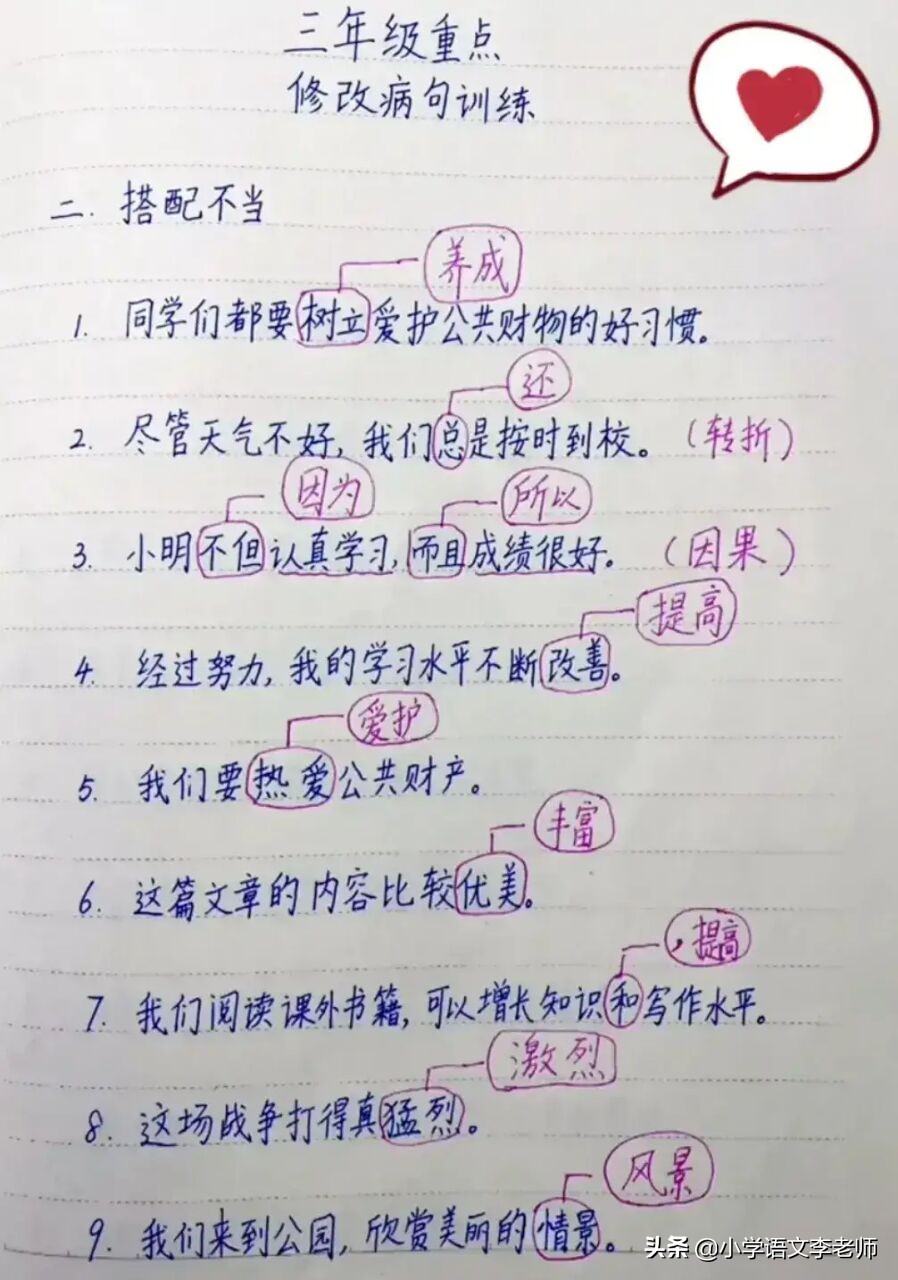 三年级重点
修改病句训练
二. 搭配不当
养成
1. 同学们都要树立爱护公共财物的好习惯。
还
2. 尽管天气不好,我们总是按时到校。(转折)
因为 所以
3. 小明不但认真学习,而且成绩很好。(因果)
提高
4. 经过努力,我的学习水平不断改善。
爱护
5. 我们要热爱公共财产。
丰富
6. 这篇文章的内容比较优美。
,提高
7. 我们阅读课外书籍,可以增长知识和写作水平。
激烈
8. 这场战争打得真猛烈。
风景
9. 我们来到公园,欣赏美丽的情景。
头条 @小学语文李老师